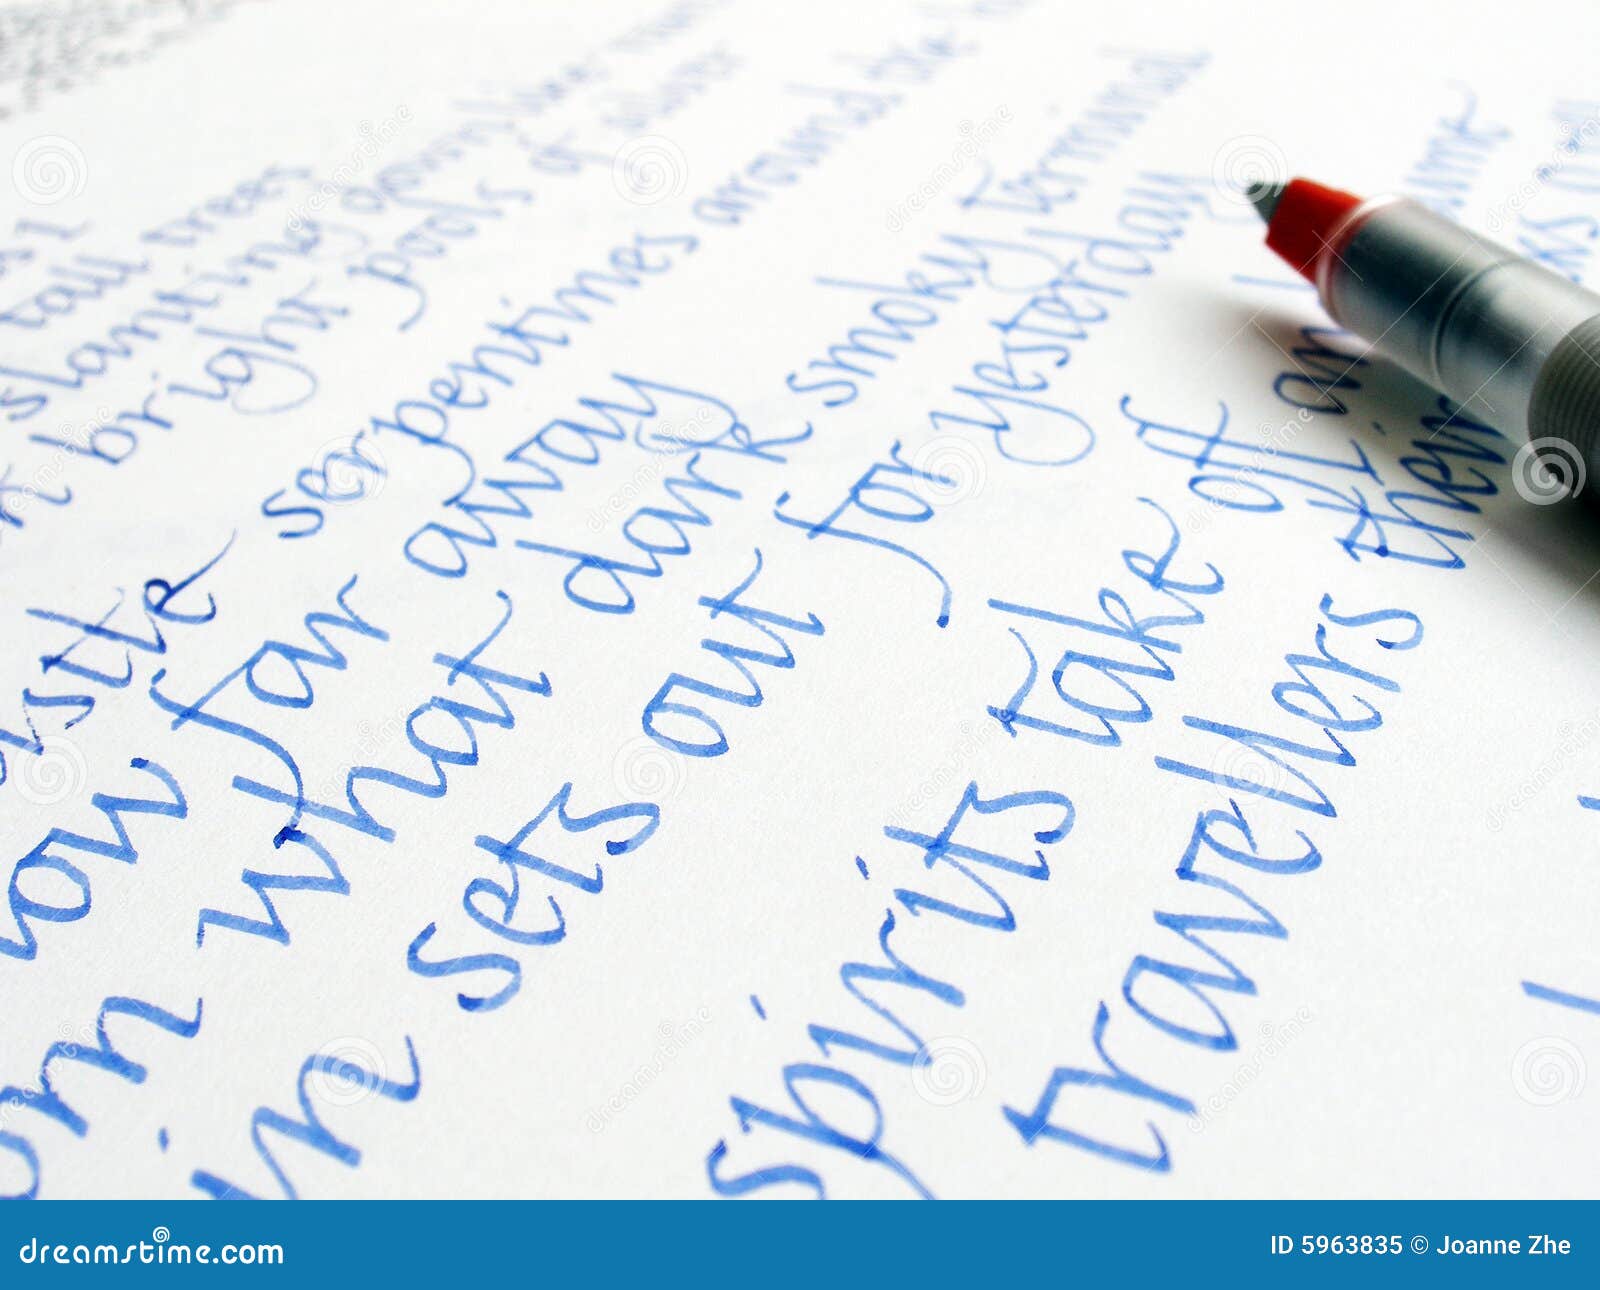 tall trees
slanting down like
bright pools of silver
serpentines around the
far away
what dark smoky terminal
in sets out for yesterday
spirits take off
travellers their
dreamstime.com
ID 5963835 © Joanne Zhe